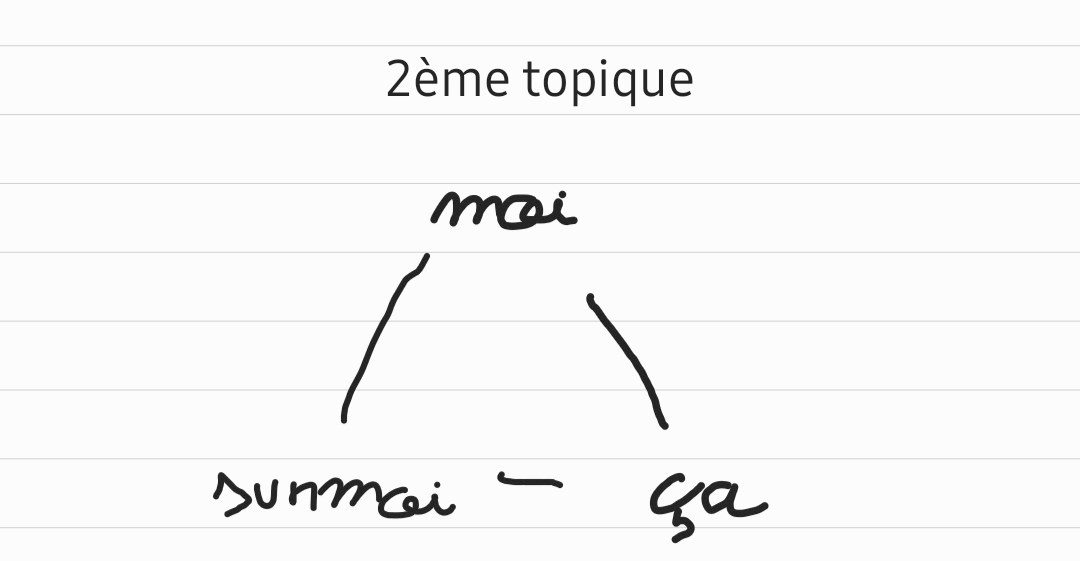 2ème topique
moi
surmoi - ça